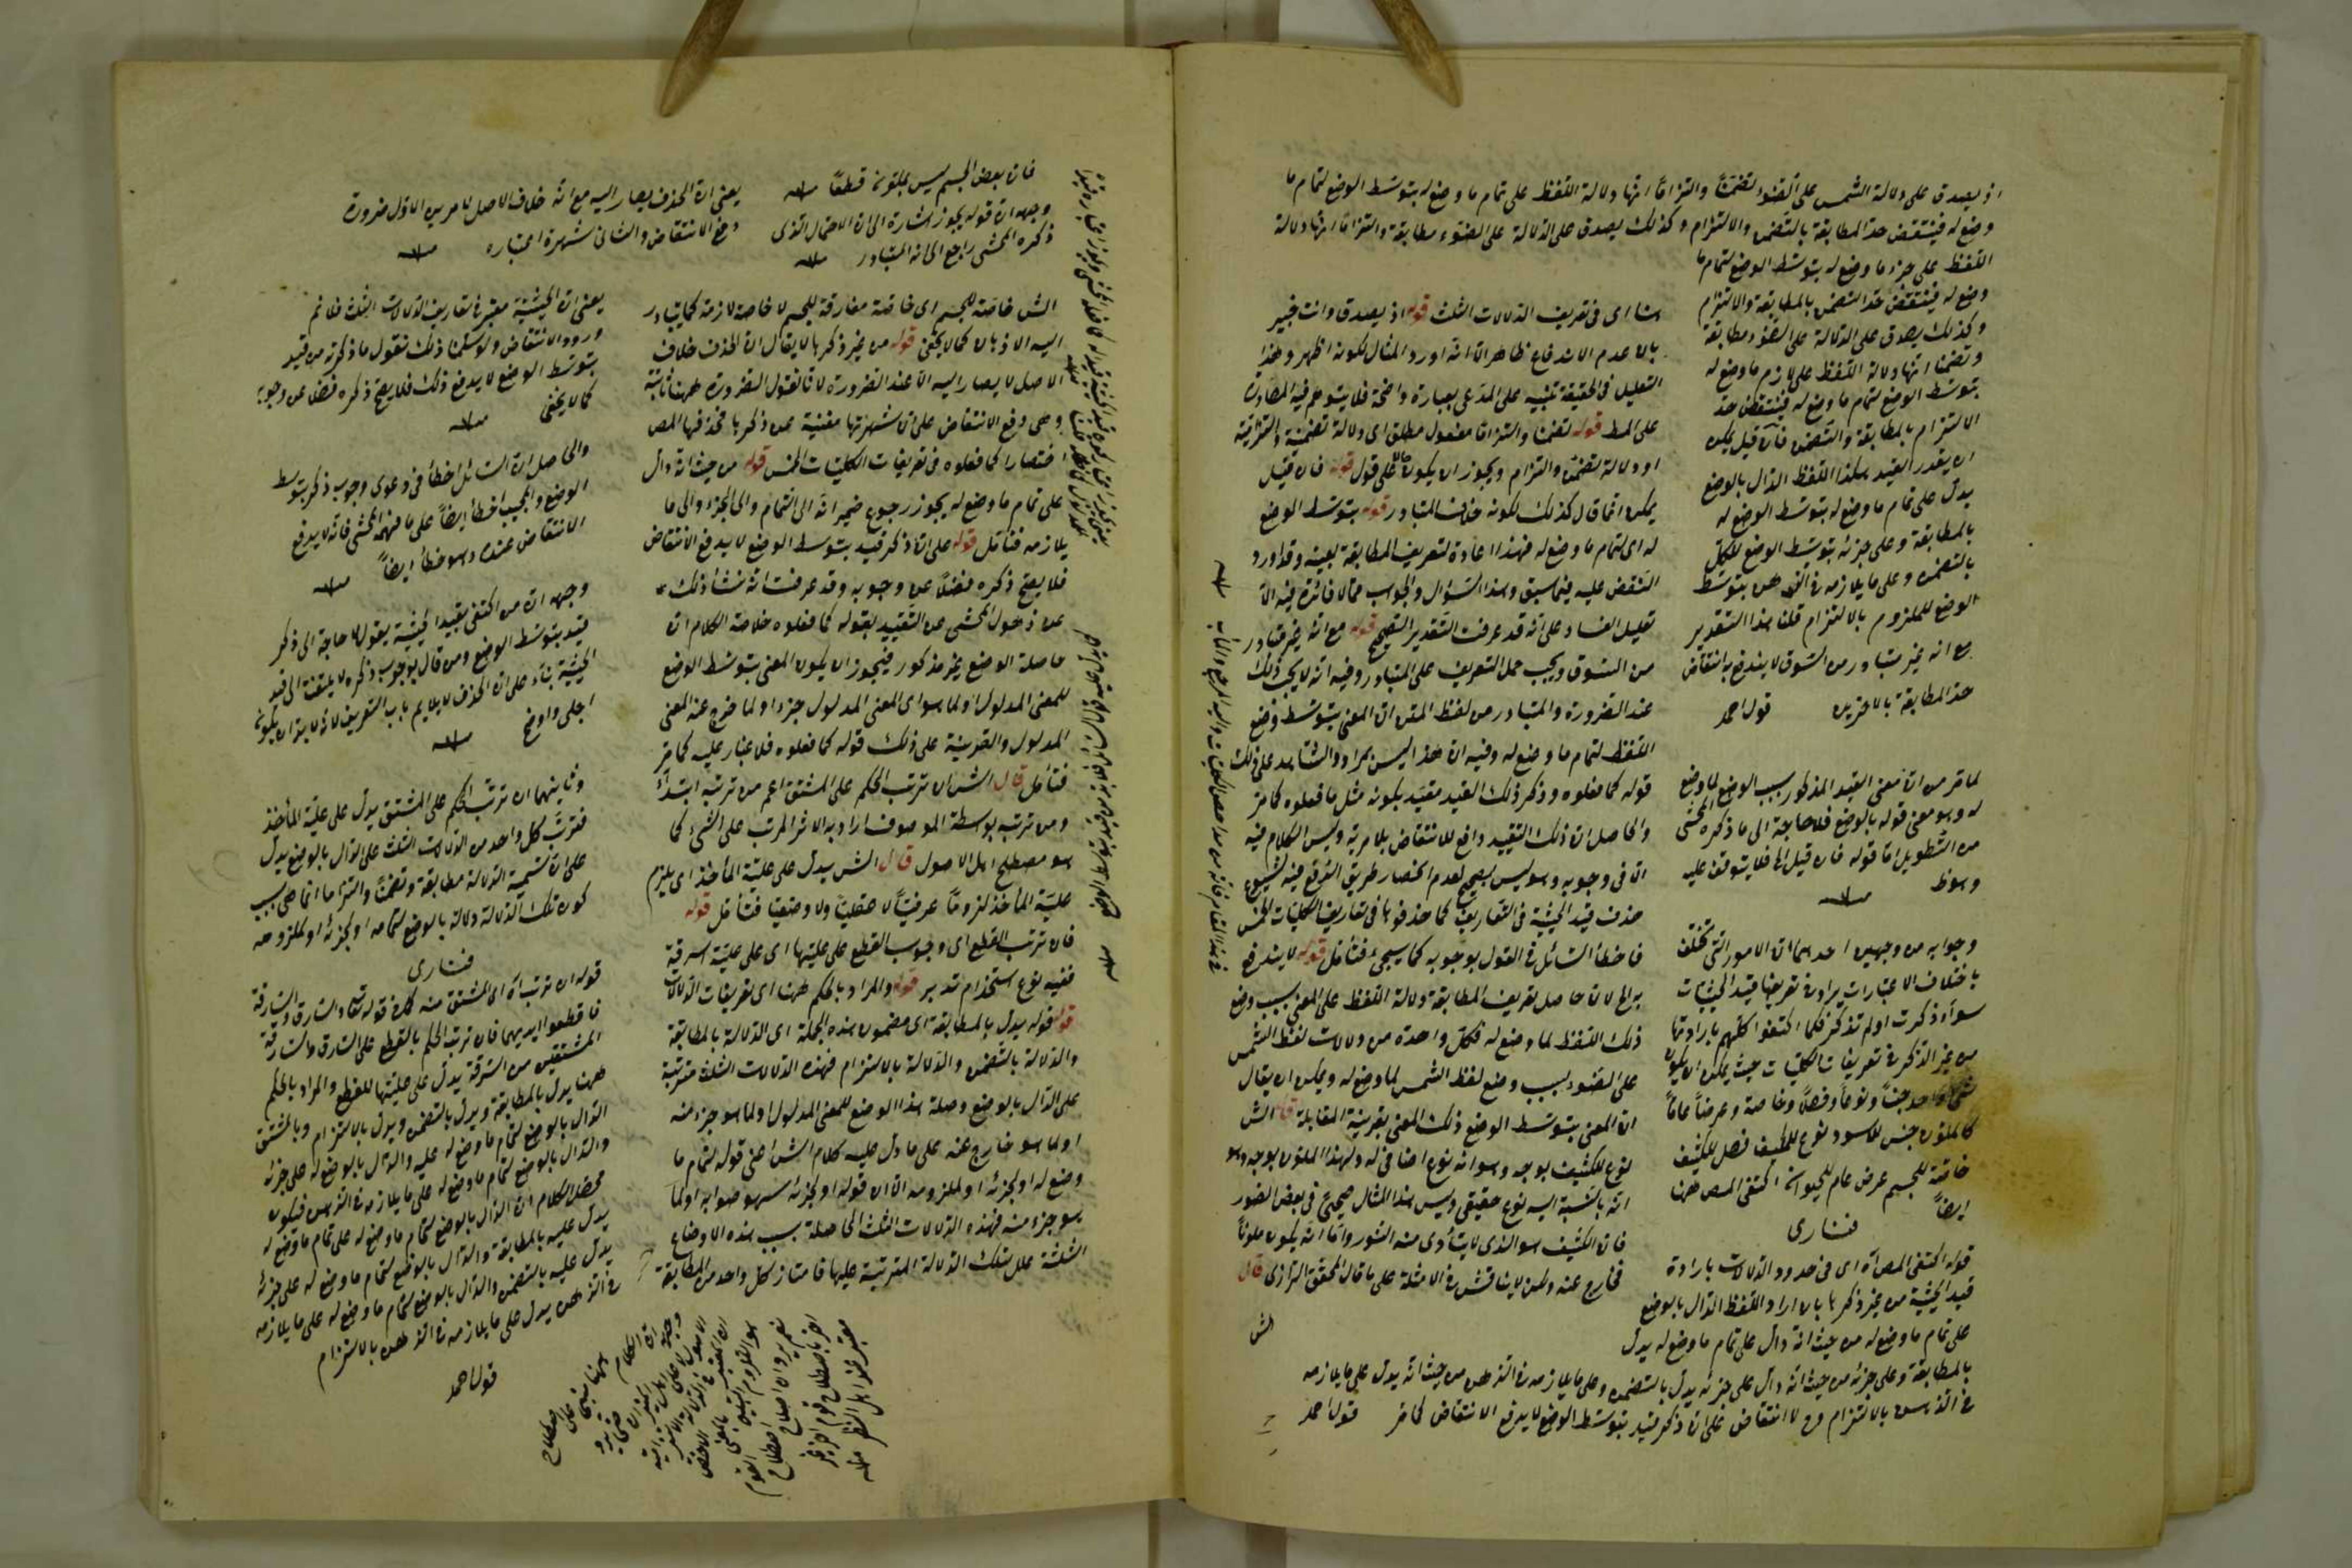 اذ يصدق على دلالة الشمس على الضوء تضمناً والتزاماً انها دلالة اللفظ على تمام ما وضع له بتوسط الوضع لتمام ما
وضع له فينتقض حد المطابقة بالتضمن والالتزام وكذلك يصدق على الدلالة على الضوء مطابقة والتزاما انها دلالة
اللفظ على جزء ما وضع له بتوسط الوضع لتمام ما
وضع له فينتقض حد التضمن بالمطابقة والالتزام
وكذلك يصدق على الدلالة على الضوء مطابقة
وتضمنا انها دلالة اللفظ على لازم ما وضع له
بتوسط الوضع لتمام ما وضع له فينتقض حد
الالتزام بالمطابقة والتضمن فان قيل يمكن
ان يقدر القيد هكذا اللفظ الدال بالوضع
يدل على تمام ما وضع له بتوسط الوضع له
بالمطابقة وعلى جزئه بتوسط الوضع للكل
بالتضمن وعلى ما يلازمه في الذهن بتوسط
الوضع للملزوم بالالتزام قلنا هذا التقدير
مع انه غير متبادر من السوق لا يندفع به انتقاض
حد المطابقة بالاخرين قول احمد
لما مر من ان معنى القيد المذكور بسبب الوضع لما وضع
له وهو معنى قوله بالوضع فلا حاجة الى ما ذكره المحشى
من التطويل اما قوله فان قيل الخ فلا يتوقف عليه
وهو ظ
وجوابه من وجهين احدهما ان الامور التي تختلف
باختلاف الاعتبارات يراد في تعريفها قيد الحيثيات
سواء ذكرت او لم تذكر فكما اكتفوا كلهم بارادتها
من غير الذكر في تعريفات الكليات حيث يمكن ان يكون
شئ واحد جنساً ونوعاً وفصلاً وخاصة وعرضاً عاماً
كالملون جنس للاسود نوع للمكيف فصل للكثيف
خاصة للجسم عرض عام للحيوان اكتفى المص ههنا
ايضاً
فنارى
قوله اكتفى المص اه اى في حدود الدلالات بارادة
قيد الحيثية من غير ذكرها بان اراد اللفظ الدال بالوضع
على تمام ما وضع له من حيث انه دال على تمام ما وضع له يدل
بالمطابقة وعلى جزئه من حيث انه دال على جزئه يدل بالتضمن وعلى ما يلازمه في الذهن من حيث انه يدل على ما يلازمه
في الذهن بالالتزام وح لا انتقاض على ان ذكر قيد بتوسط الوضع لا يدفع الانتقاض كما مر قول احمد
هنا اى في تعريف الدلالات الثلث قوله اذ يصدق وانت خبير
بان عدم الاندفاع ظاهر الا انه اورد المثال لكونه اظهر وهذا
التعليل في الحقيقة تنبيه على المدعى بعبارة واضحة فلا يتوهم فيه المصادرة
على المط قوله تضمنا والتزاما مفعول مطلق اى دلالة تضمنية والتزامية
او دلالة تضمن والتزام ويجوز ان يكون على قول قوله فان قيل
يمكن انما قال كذلك لكونه خلاف المتبادر قوله بتوسط الوضع
له اى لتمام ما وضع له فهذا اعادة لتعريف المطابقة بعينه وقد اورد
النقض عليه فيما سبق وهذا السؤال والجواب مما لا فائدة فيه الا
تعليل الفساد على انه قد عرفت التقدير الصحيح قوله مع انه غير متبادر
من السوق ويجب حمل التعريف على المتبادر وفيه انه لا يجب ذلك
عند الضرورة والمتبادر من لفظ المتن ان المعنى بتوسط وضع
اللفظ لتمام ما وضع له وفيه ان هذا ليس بمراد والشاهد على ذلك
قوله كما فعلوه وذكر ذلك القيد مقيد بكونه مثل ما فعلوه كما مر
والحاصل ان ذلك التقييد دافع للانتقاض بلا مرية وليس الكلام فيه
الا في وجوبه وهو ليس بصحيح لعدم انحصار طريق الدفع فيه لشيوع
حذف قيد الحيثية في التعاريف كما حذفوها في تعاريف الكليات الخمس
فاخطأ السائل في القول بوجوبه كما سيجئ فتأمل قوله لا يندفع
به الخ لان حاصل تعريف المطابقة دلالة اللفظ على المعنى بسبب وضع
ذلك اللفظ لما وضع له فكل واحدة من دلالات لفظ الشمس
على الضوء بسبب وضع لفظ الشمس لما وضع له ويمكن ان يقال
ان المعنى بتوسط الوضع ذلك المعنى بقرينة المقابلة قال الش
نوع للكثيف بوجه وهو انه نوع اضافى له ولهذا الملون بوجه وهو
انه بالنسبة اليه نوع حقيقى وليس هذا المثال صحيحا في بعض الصور
فان الكثيف هو الذى لا يتأدى منه النور واما انه يكون ملوناً
فخارج عنه ولكن لا يناقش في الامثلة على ما قال المحقق الرازى قال
الش
فان بعض الجسم ليس بملون قطعاً
وجهه ان قوله يجوز اشارة الى ان الاحتمال الذى
ذكره المحشى راجع الى انه المتبادر
يعنى ان الحذف يصار اليه مع انه خلاف الاصل لامرين الاول ضرورة
دفع الانتقاض والثانى شهرة اعتباره
الش خاصة للجسم اى خاصة مفارقة للجسم لا خاصة لازمة كما يتبادر
اليه الاذهان كما لا يخفى قوله من غير ذكرها لا يقال ان الحذف خلاف
الاصل لا يصار اليه الا عند الضرورة لانا نقول الضرورة ههنا ثابتة
وهى دفع الانتقاض على ان شهرتها مغنية عن ذكرها فحذفها المص
اختصارا كما فعلوه في تعريفات الكليات الخمس قوله من حيث انه دال
على تمام ما وضع له يجوز رجوع ضمير انه الى التمام والى الجزء والى ما
يلازمه فتأمل قوله على ان ذكر قيد بتوسط الوضع لا يدفع الانتقاض
فلا يصح ذكره فضلاً عن وجوبه وقد عرفت انه نشأ ذلك
عن ذهول المحشى عن التقييد بقوله كما فعلوه خلاصة الكلام ان
حاصلة الوضع غير مذكور فيجوز ان يكون المعنى بتوسط الوضع
للمعنى المدلول او لما سوى المعنى المدلول جزء او لما خرج عنه المعنى
المدلول والقرينة على ذلك قوله كما فعلوه فلا غبار عليه كما مر
فتأمل قال الش ان ترتب الحكم على المشتق اعم من ترتبه ابتداءً
ومن ترتبه بواسطة الموصوف اراد به الاثر المرتب على الشئ كما
هو مصطلح اهل الاصول قال الش يدل على علية المأخذ اى يلزم
علية المأخذ لزوماً عرفياً لا عقلياً ولا وضعياً فتأمل قوله
فان ترتب القطع اى وجوب القطع على عليتها اى على علية السرقة
ففيه نوع استخدام تدبر قوله والمراد بالحكم ههنا اى تعريفات الدلالات
قوله قوله يدل بالمطابقة اى مضمون هذه الجملة اى الدلالة بالمطابقة
والدلالة بالتضمن والدلالة بالالتزام فهذه الدلالات الثلث مترتبة
على الدال بالوضع وصلة هذا الوضع للمعنى المدلول او لما هو جزء منه
او لما هو خارج عنه على ما دل عليه كلام الش اعنى قوله لتمام ما
وضع له او لجزئه او لملزومه الا ان قوله او لجزئه سهو صوابه او لما
هو جزء منه فهذه الدلالات الثلث الحاصلة بسبب هذه الاوضاع
الثلثة علل لتلك الدلالة المترتبة عليها فامتاز كل واحد من المطابقة
يعنى ان الحيثية معتبرة في تعاريف الدلالات الثلث فلا تم
ورود الانتقاض ولو سلمنا ذلك نقول ما ذكرته من قيد
بتوسط الوضع لا يدفع ذلك فلا يصح ذكره فضلا عن وجوبه
كما لا يخفى
والحاصل ان السائل اخطأ في دعوى وجوب ذكر بتوسط
الوضع والمجيب اخطأ ايضاً على ما فهمه المحشى فانه لا يدفع
الانتقاض عنده وهو خطأ ايضاً
وجهه ان من اكتفى بقيد الحيثية يقول لا حاجة الى ذكر
قيد بتوسط الوضع ومن قال بوجوب ذكره لا يلتفت الى قيد
الحيثية بناء على ان الحذف لا يلايم باب التعريف لانه لا بد ان يكون
اجلى واوضح
وثانيهما ان ترتب الحكم على المشتق يدل على علية المأخذ
فترتب كل واحد من الدلالات الثلث على الدال بالوضع يدل
على ان تسمية الدلالة مطابقة وتضمنا والتزاما انما هى بسبب
كون تلك الدلالة دلالة بالوضع لتمامه او لجزئه او لملزومه
فنارى
قوله ان ترتب اه اى المشتق منه كما في قوله تعالى والسارق والسارقة
فاقطعوا ايديهما فان ترتب الحكم بالقطع على السارق والسارقة
المشتقين من السرقة يدل على عليتها للقطع والمراد بالحكم
ههنا يدل بالمطابقة ويدل بالتضمن ويدل بالالتزام وبالمشتق
الدال بالوضع لتمام ما وضع له عليه والدال بالوضع له على جزئه
والدال بالوضع لتمام ما وضع له على ما يلازمه في الذهن فيكون
محصل الكلام ان الدال بالوضع لتمام ما وضع له على تمام ما وضع له
يدل عليه بالمطابقة والدال بالوضع لتمام ما وضع له على جزئه
يدل عليه بالتضمن والدال بالوضع لتمام ما وضع له على ما يلازمه
في الذهن يدل على ما يلازمه في الذهن بالالتزام
قول احمد